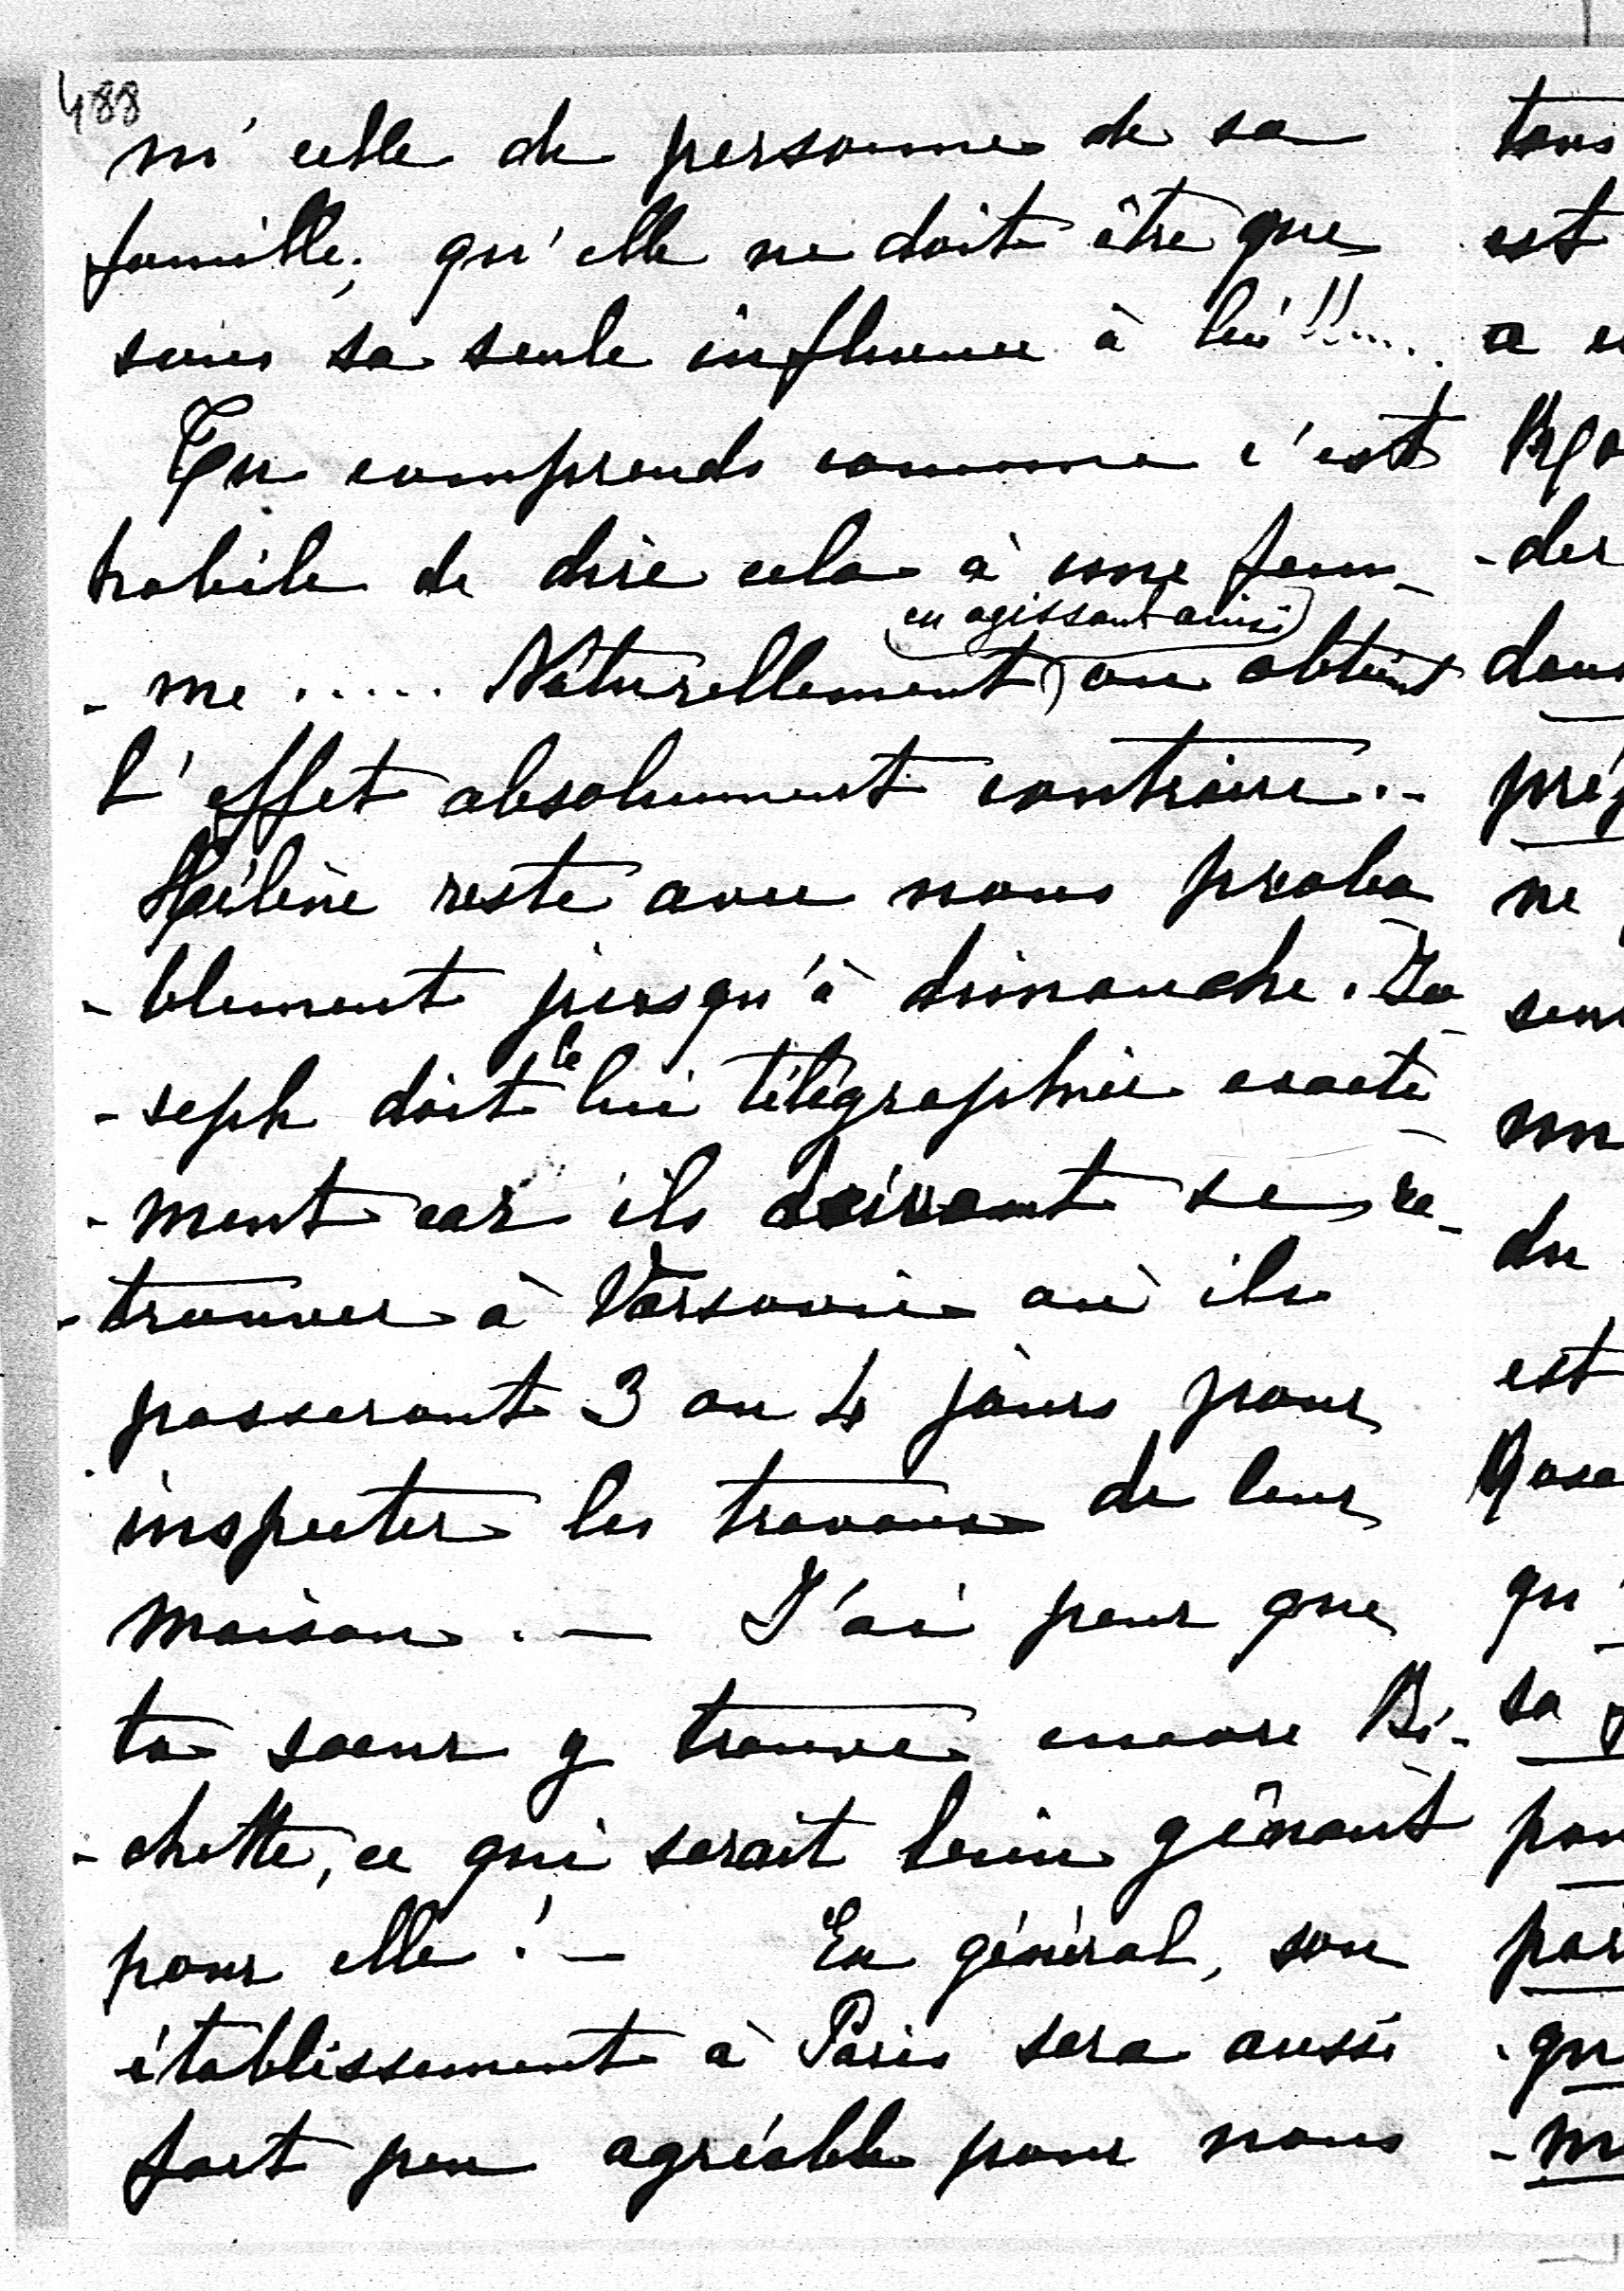 488
ni celle de personne de sa
famille, qu'elle ne doit être que
sous sa seule influence à lui!!....
Tu comprends comme c'est
habile de dire cela à une fem-
-me ..... Naturellement (en agissant ainsi) on obtient
l'effet absolument contraire.-
Hélène reste avec nous proba-
-blement jusqu'à dimanche. Jo-
-seph doit le lui télégraphier exacte-
-ment car ils doivent se re-
-trouver à Varsovie où ils
passeront 3 ou 4 jours pour
inspecter les travaux de leur
maison. — J'ai peur que
ta soeur y trouve encore Bi-
-chette, ce qui serait bien gênant
pour elle! — En général, son
établissement à Paris sera aussi
fort peu agréable pour nous
tous
est
a
-der
dans
ne
du
est
qu'
sa